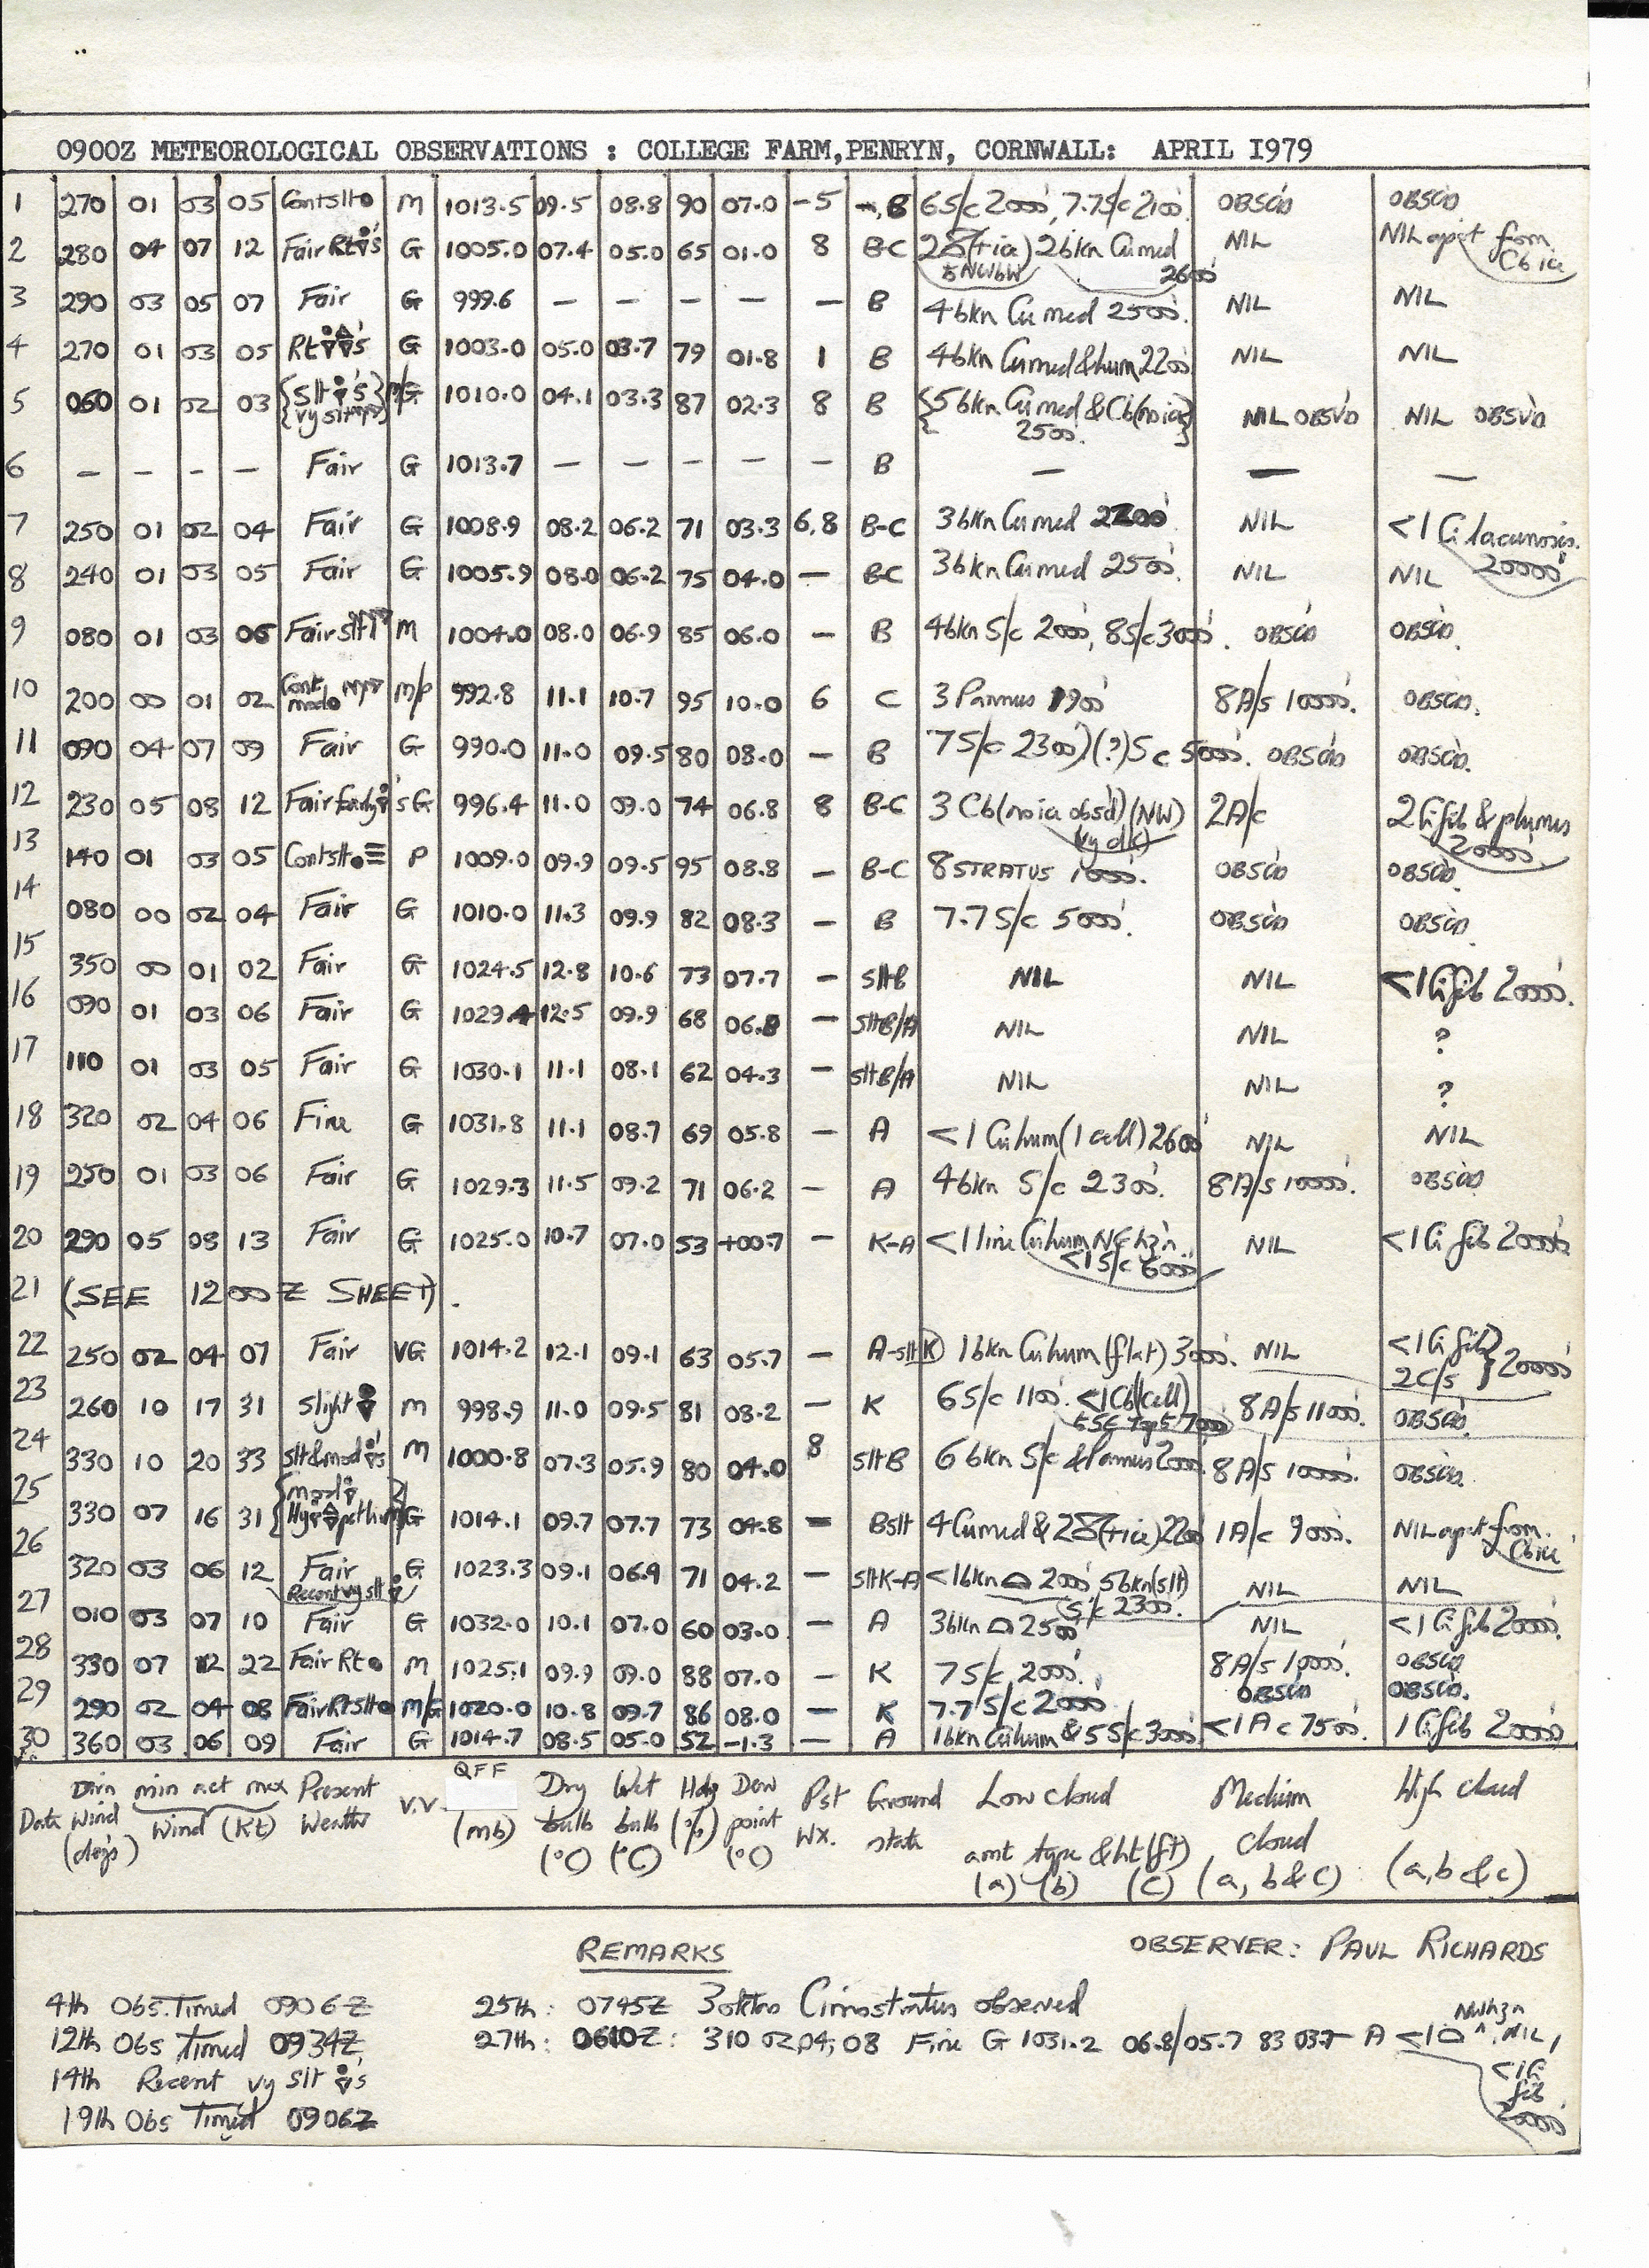 0900Z METEOROLOGICAL OBSERVATIONS : COLLEGE FARM,PENRYN, CORNWALL: APRIL I979
1 270 01 03 05 Contslt M 1013.5 09.5 08.8 90 07.0 -5 B 6S/c 2000', 7.7S/c 2100'. OBSC'D OBSC'D
2 280 04 07 12 Fair Rt 's G 1005.0 07.4 05.0 65 01.0 8 B-C (+ica) 2bkn Cumed NIL NIL apart from
NWbW 2600' Cb ica
3 290 03 05 07 Fair G 999.6 — — — — — B 4bkn Cu med 2500'. NIL NIL
4 270 01 03 05 Rt 's G 1003.0 05.0 03.7 79 01.8 1 B 4bkn Cumed&hum 2200' NIL NIL
5 060 01 02 03 {Slt 's} m/G 1010.0 04.1 03.3 87 02.3 8 B {5bkn Cumed & Cb(no ica) NIL OBSV'D NIL OBSV'D
{vy slt 2500'.
6 — — — — Fair G 1013.7 — — — — — B — — —
7 250 01 02 04 Fair G 1008.9 08.2 06.2 71 03.3 6,8 B-C 3bkn Cumed 2200' NIL <1 Ci lacunosis.
20000'
8 240 01 03 05 Fair G 1005.9 08.0 06.2 75 04.0 — B-C 3bkn Cumed 2500'. NIL NIL
9 080 01 03 06 Fair slt M 1004.0 08.0 06.9 85 06.0 — B 4bkn S/c 2000', 8S/c 3000'. OBSC'D OBSC'D.
10 200 00 01 02 Cont mod m/p 992.8 11.1 10.7 95 10.0 6 C 3 Pannus 1900' 8A/s 10000'. OBSC'D.
11 090 04 07 09 Fair G 990.0 11.0 09.5 80 08.0 — B 7S/c 2300')(?)Sc 5000'. OBSC'D OBSC'D.
12 230 05 08 12 Fair Early 's G 996.4 11.0 09.0 74 06.8 8 B-C 3 Cb(no ica obs'd)(NW) 2A/c 2Ci fib & plumus
(vy dk) 20000'.
13 140 01 03 05 Contslt ≡ P 1009.0 09.9 09.5 95 08.8 — B-C 8 STRATUS 1000'. OBSC'D OBSC'D.
14 080 00 02 04 Fair G 1010.0 11.3 09.9 82 08.3 — B 7.7 S/c 5000'. OBSC'D OBSC'D.
15 350 00 01 02 Fair G 1024.5 12.8 10.6 73 07.7 — slt B NIL NIL <1 Ci fib 20000'.
16 090 01 03 06 Fair G 1029.4 12.5 09.9 68 06.8 — slt B/A NIL NIL ?
17 110 01 03 05 Fair G 1030.1 11.1 08.1 62 04.3 — slt B/A NIL NIL ?
18 320 02 04 06 Fine G 1031.8 11.1 08.7 69 05.8 — A <1 Cuhum(1 cell) 2600' NIL NIL
19 250 01 03 06 Fair G 1029.3 11.5 09.2 71 06.2 — A 4bkn S/c 2300'. 8A/s 10000'. OBSC'D
20 290 05 08 13 Fair G 1025.0 10.7 07.0 53 +00.7 — K-A <1 line Cuhum NE hzn. NIL <1 Ci fib 20000'
<1 S/c 6000'
21 (SEE 1200 Z SHEET).
22 250 02 04 07 Fair VG 1014.2 12.1 09.1 63 05.7 — A-slt K 1bkn Cuhum(flat) 3000'. NIL <1 Ci fib} 20000'
2C/s
23 260 10 17 31 Slight M 998.9 11.0 09.5 81 08.2 — K 6S/c 1100'. <1Cb(1cell) 8A/s 11000'. OBSC'D.
ESE Tops 7000'
24 330 10 20 33 slt&mod 's M 1000.8 07.3 05.9 80 04.0 8 slt B 6bkn S/c & Pannus 2000'. 8A/s 10000'. OBSC'D.
25 330 07 16 31 {mod G 1014.1 09.7 07.7 73 04.8 — B slt 4Cumed & (+ica) 2200' 1A/c 9000'. NIL apart from.
Cb ica
26 320 03 06 12 Fair G 1023.3 09.1 06.9 71 04.2 — slt K-A <1bkn 2000' 5bkn(slt) NIL NIL
Recent vy slt S/c 2300'.
27 010 03 07 10 Fair G 1032.0 10.1 07.0 60 03.0 — A 3bkn 2500' NIL <1 Ci fib 20000'.
28 330 07 12 22 Fair Rt M 1025.1 09.9 09.0 88 07.0 — K 7S/c 2000'. 8A/s 10000'. OBSC'D
29 290 02 04 08 Fair Rt slt M/G 1020.0 10.8 09.7 86 08.0 — K 7.7 S/c 2000' OBSC'D OBSC'D.
30 360 03 06 09 Fair G 1014.7 08.5 05.0 52 -1.3 — A 1bkn Cuhum & 5S/c 3000' <1Ac 7500'. 1Ci fib 20000'
QFF
Date Dirn Wind (deg's) min act max Wind (Kt) Present Weather V.V. (mb) Dry bulb (°C) Wet bulb (°C) Hdy (%) Dew point (°C) Pst Wx. Ground state Low cloud Medium cloud High cloud
amt type & ht (ft)
(a) (b) (c) (a, b&c) (a,b&c)
REMARKS OBSERVER: PAUL RICHARDS
4th Obs. Timed 0906Z 25th: 0745Z 3 oktas Cirrostratus observed
12th Obs Timed 0934Z 27th: 0610Z: 310 02,04,08 Fine G 1031.2 06.8/05.7 83 03.7 — A <1 NW hzn, NIL,
<1Ci
fib
20000'
14th Recent vy slt 's
19th Obs Timed 0906Z